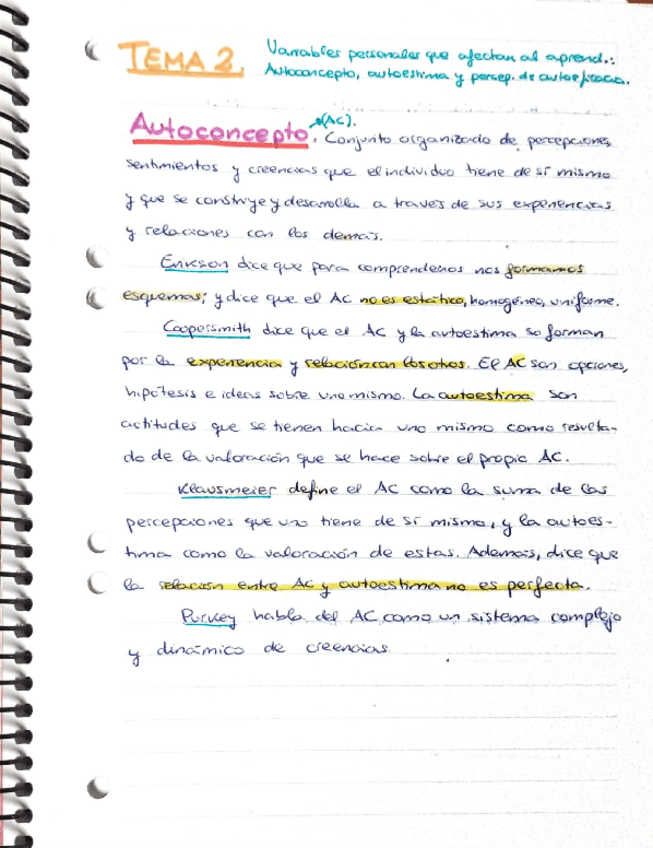 TEMA 2. Variables personales que afectan al aprend.:
Autoconcepto, autoestima y percep. de autoeficacia.
Autoconcepto (AC). Conjunto organizado de percepciones,
sentimientos y creencias que el individuo tiene de sí mismo
y que se construye y desarrolla a través de sus experiencias
y relaciones con los demás.
Erikson dice que para comprendenos nos formamos
esquemas; y dice que el AC no es estático, homogéneo, uniforme.
Coopersmith dice que el AC y la autoestima se forman
por la experiencia y relación con los otros. El AC son opciones,
hipótesis e ideas sobre uno mismo. La autoestima son
actitudes que se tienen hacia uno mismo como resulta-
do de la valoración que se hace sobre el propio AC.
Klausmeier define el AC como la suma de las
percepciones que uno tiene de sí mismo, y la autoes-
tima como la valoración de estas. Además, dice que
la relación entre AC y autoestima no es perfecta.
Purkey habla del AC como un sistema complejo
y dinámico de creencias.